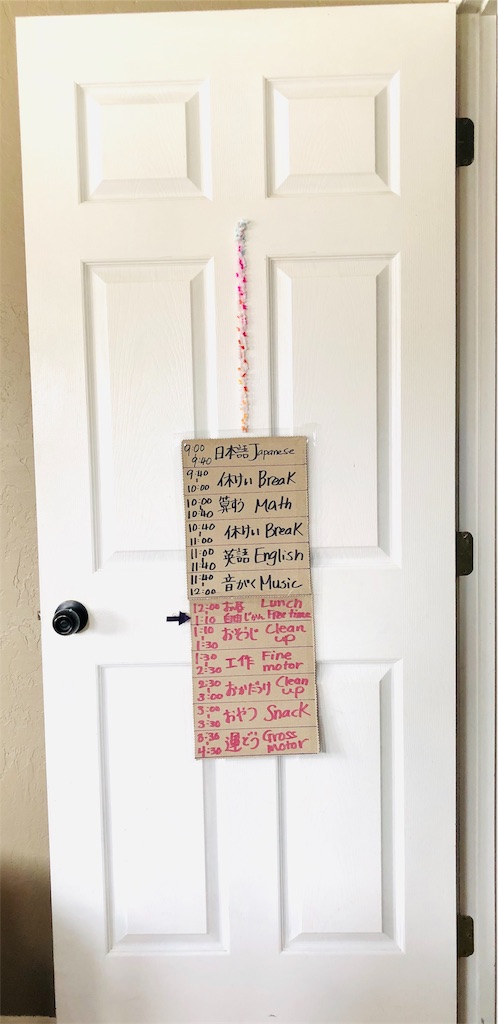 9:00
9:40 日本語 Japanese
9:40
10:00 休けい Break
10:00
10:40 算すう Math
10:40
11:00 休けい Break
11:00
11:40 英語 English
11:40
12:00 音がく Music
12:00 お昼 Lunch
1:10 自由じかん Free time
1:10
1:30 おそうじ Clean up
1:30
2:30 工作 Fine motor
2:30
3:00 おかたづけ Clean up
3:00
3:30 おやつ Snack
3:30
4:30 運どう Gross motor